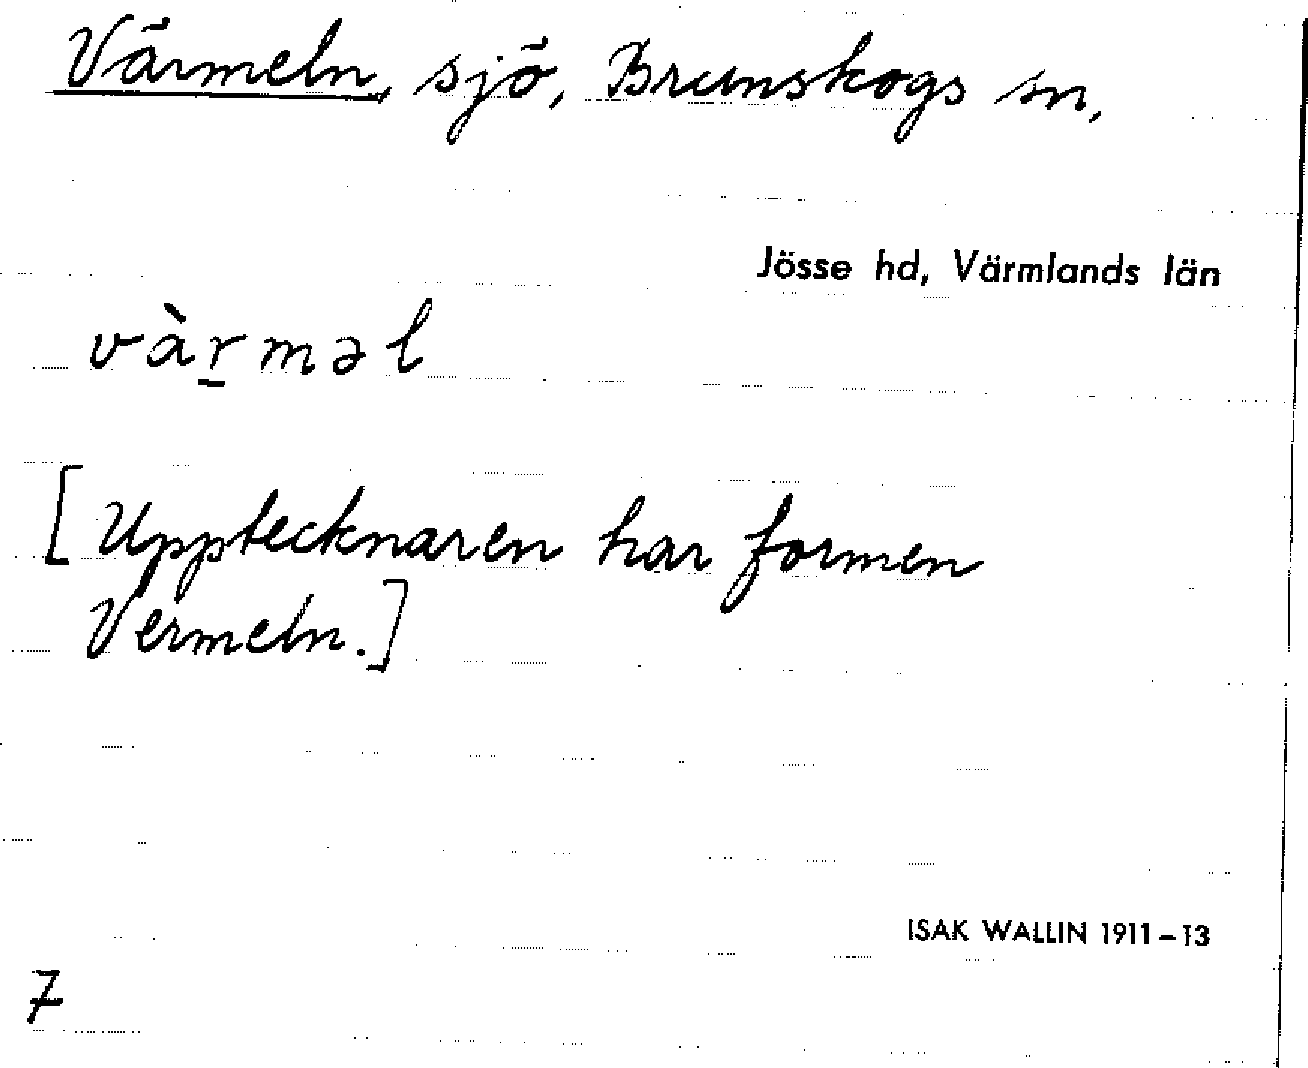 Värmeln, sjö, Brunskogs sn,
Jösse hd, Värmlands län
vàr̠məl
[Upptecknaren har formen
Vermeln.]
ISAK WALLIN 1911–13
7